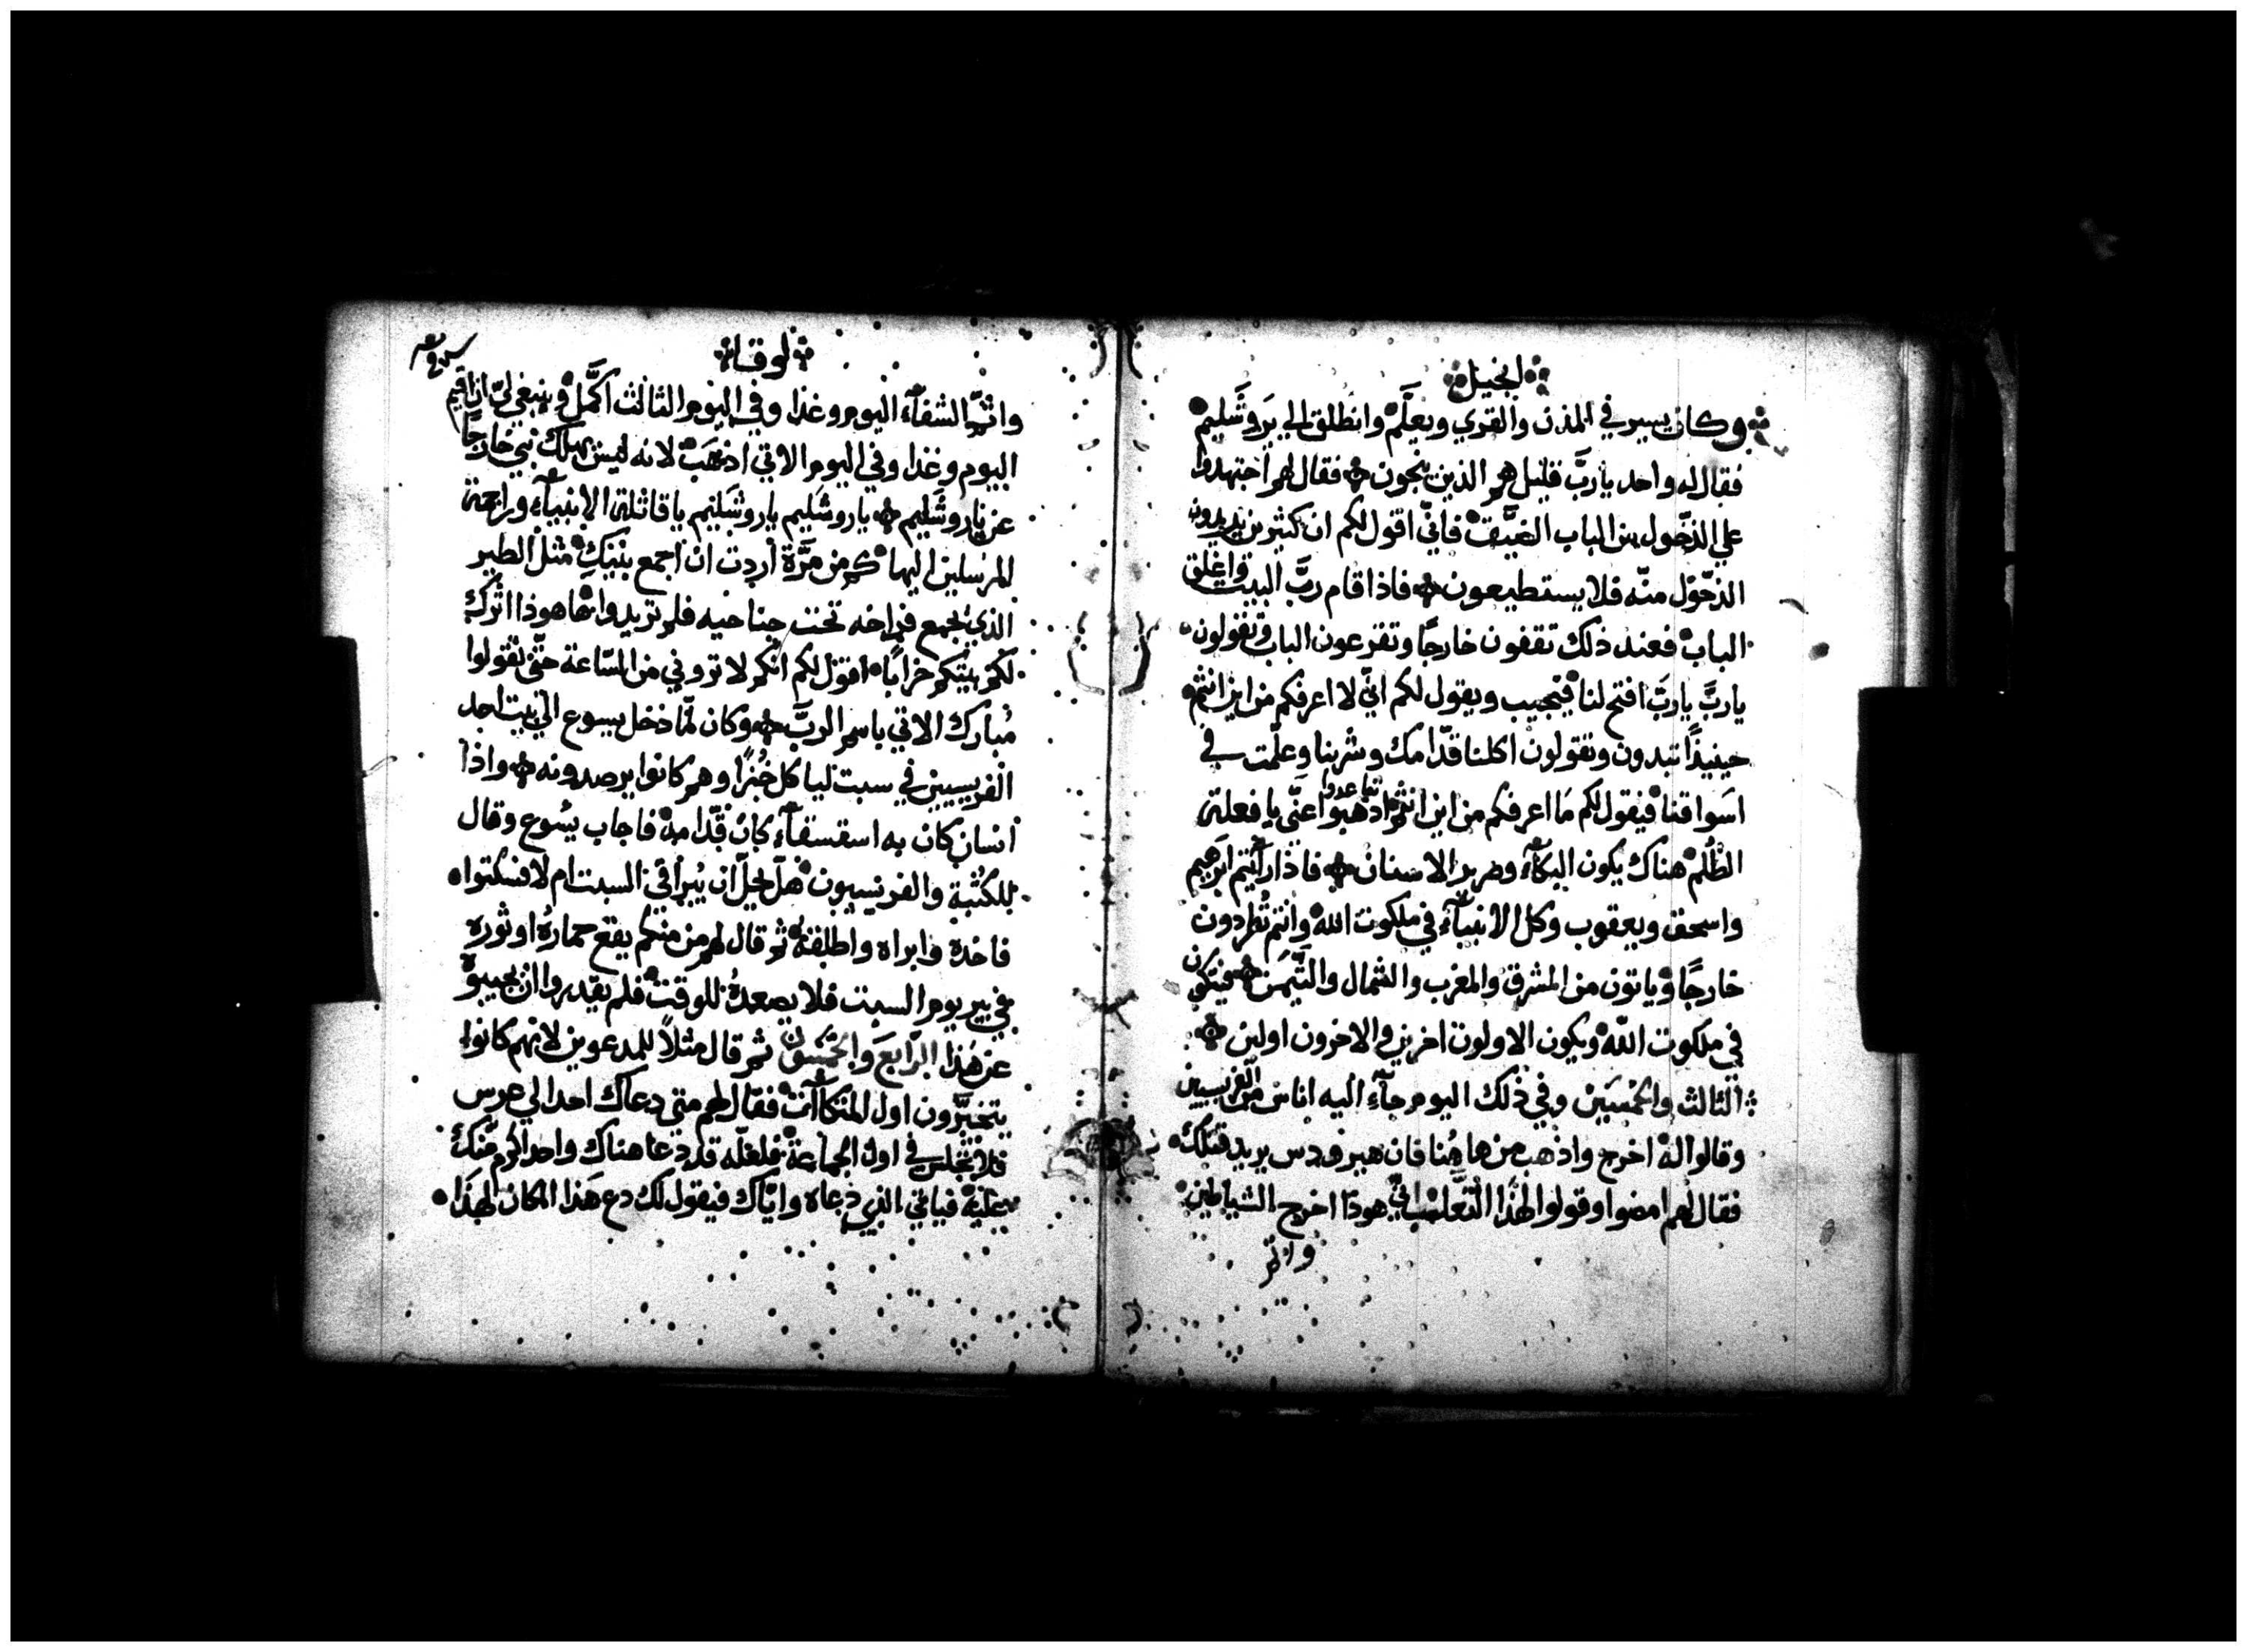 انجيل
وكان يسير في المدن والقري ويعلّم وانطلق الي يروشَليم
فقال له واحد يا ربّ قليل هم الذين ينجون فقال لهم اجتهدوا
علي الدخول من الباب الضيّق فانّي اقول لكم ان كثيرين يريدون
الدخول منّه فلا يستطيعون فاذا قام ربَّ البيت واغلق
الباب فعند ذلك تقفون خارجًا وتقرعون الباب وتقولون
يا ربَّ يا ربَّ افتح لنا فيجيب ويقول لكم انّي لا اعرفكم من اين انتم
حينيذًا تبدون وتقولون اكلنا قدّامك وشربنا وعلّمت في
اسَواقنا فيقول لكم مَا اعرفكم من اين انتم تباعدوا اذهبوا عنّي يا فعلة
الظُلم هناك يكون البكآء وصرير الاسنان فاذا رايتم ابرهيم
واسحق ويعقوب وكل الانبيآء في ملكوت الله وانتم تُطردون
خارجًا وياتون من المشرق والمغرب والشمال والتّيمَن فيتكون
في ملكوت اللّه ويكون الاولون اخرين والاخرون اولين
الثالث والخمسَين وفي ذلك اليوم جآء اليه اناس من الفريسيين
وقالوا له اخرج واذهب من هاهُنا فان هيرودس يريد قتلك
فقال لهم امضوا وقولوا لهذا الثعَّلب انّي هوذا اخرج الشياطين
واتم
لوقا
واتمّ الشفآء اليوم وغدا وفي اليوم الثالث اكَّمل وينبغي لي ان اقيم
اليوم وغدا وفي اليوم الاتي اذهَب لانه ليس يهلك نبي خارجًا
عن ياروشَليم ياروشَليم ياروشَليم يا قاتلة الانبيآء وراجمة
المرسلين اليها كم من مَرَّة أردت ان اجمع بنيكِ مثل الطير
الذي يجمع فراخه تحت جناحيه فلم تريدوا ها هوذا اترك
لكم بيتكم خرابًا اقول لكم انكم لا تروني من السّاعة حتّي تقولوا
مُبارك الاتي باسم الربّ وكان لمّا دخل يسوع الي بيت احد
الفريسيين في سبت لياكل خُبزًا وهم كانوا يرصدونه واذا
انسان كان به اسقسقآء كان قدّامه فاجاب يسُوع وقال
للكُتبة والفريسيون هل يحلّ ان يُبرا في السبت ام لا فسكتوا
فاخده وابراه واطلقه ثم قال لهم من منكم يقع حمارهُ او ثوره
في بير يوم السبت فلا يصعدهُ للوقت فلم يقدروا ان يجيبوهُ
عن هَذا الرّابعَ والخمسون ثم قال مثلاً للمدعوين لانهم كانوا
يتخيَّرون اول المتكآآت فقال لهم متي دعاك احد الي عرس
فلا تجلس في اول الجماعة فلعلّه قد دعا هناك واحد اكرم منك
عليه فياتي الذي دعاه وايّاك فيقول لك دع هَذا المكان لهذا